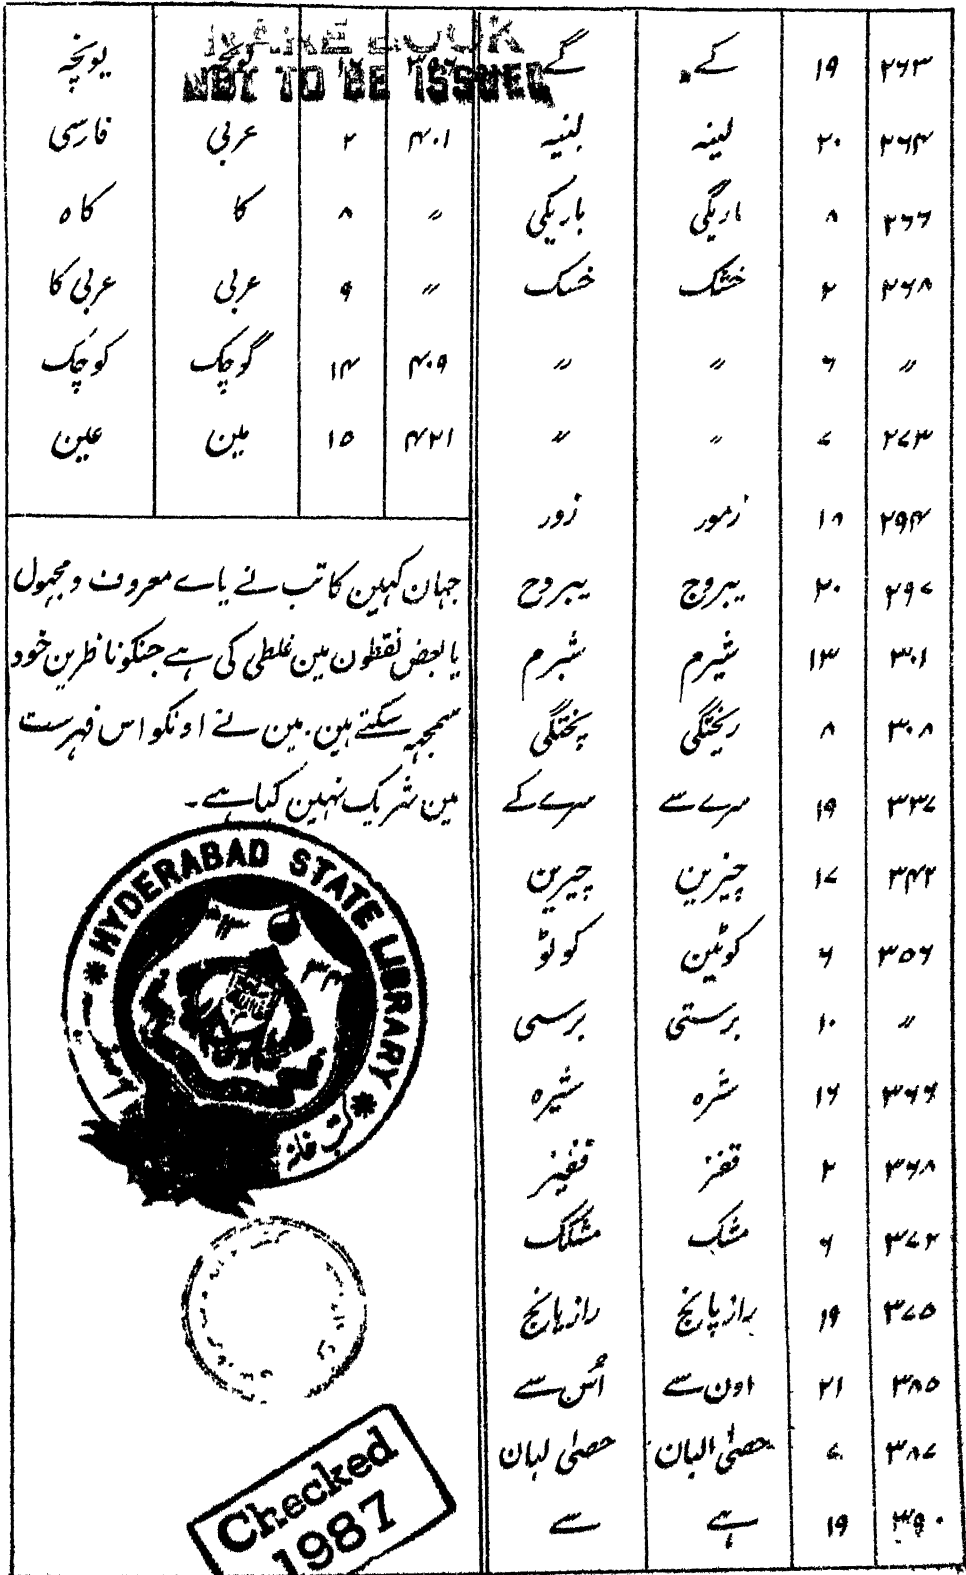 RARE BOOK
NOT TO BE ISSUED
۲۶۳ ۱۹ کے گے
۲۶۴ ۲۰ لینہ لبنیہ
۲۶۶ ۸ اریگی باریکی
۲۶۸ ۲ خشک خسک
〃 ۶ 〃 〃
۲۷۳ ۷ 〃 〃
۲۹۴ ۱۸ زمور زور
۲۹۷ ۲۰ یبروج یبروح
۳۰۱ ۱۳ شیرم شبرم
۳۰۸ ۸ ریختگی پختگی
۳۳۷ ۱۹ سرے سے سرے کے
۳۴۲ ۱۷ چیزین چیرین
۳۵۶ ۶ کوٹین کوٹو
〃 ۱۰ برستی برسی
۳۶۶ ۱۶ شرہ شیرہ
۳۶۸ ۲ قفز قفیز
۳۷۲ ۶ مشک مشکک
۳۷۵ ۱۹ رازپانج رازیانج
۳۸۵ ۲۱ اون سے اُس سے
۳۸۷ ۷ حصیٰ البان حصیٰ لبان
۳۹۰ ۱۹ ہے سے
یونچہ
۴۰۱ ۲ عربی فارسی
〃 ۸ کا کاہ
〃 ۹ عربی عربی کا
۴۰۹ ۱۴ گوچک کوچک
۴۲۱ ۱۵ مین عین
جہان کہین کاتب نے یاے معروف و مجہول
یا بعض نقطون مین غلطی کی ہے جنکو ناظرین خود
سمجہہ سکتے ہین۔ مین نے اونکو اس فہرست
مین شریک نہین کیا ہے۔
HYDERABAD STATE LIBRARY
کتب خانہ
Checked
1987